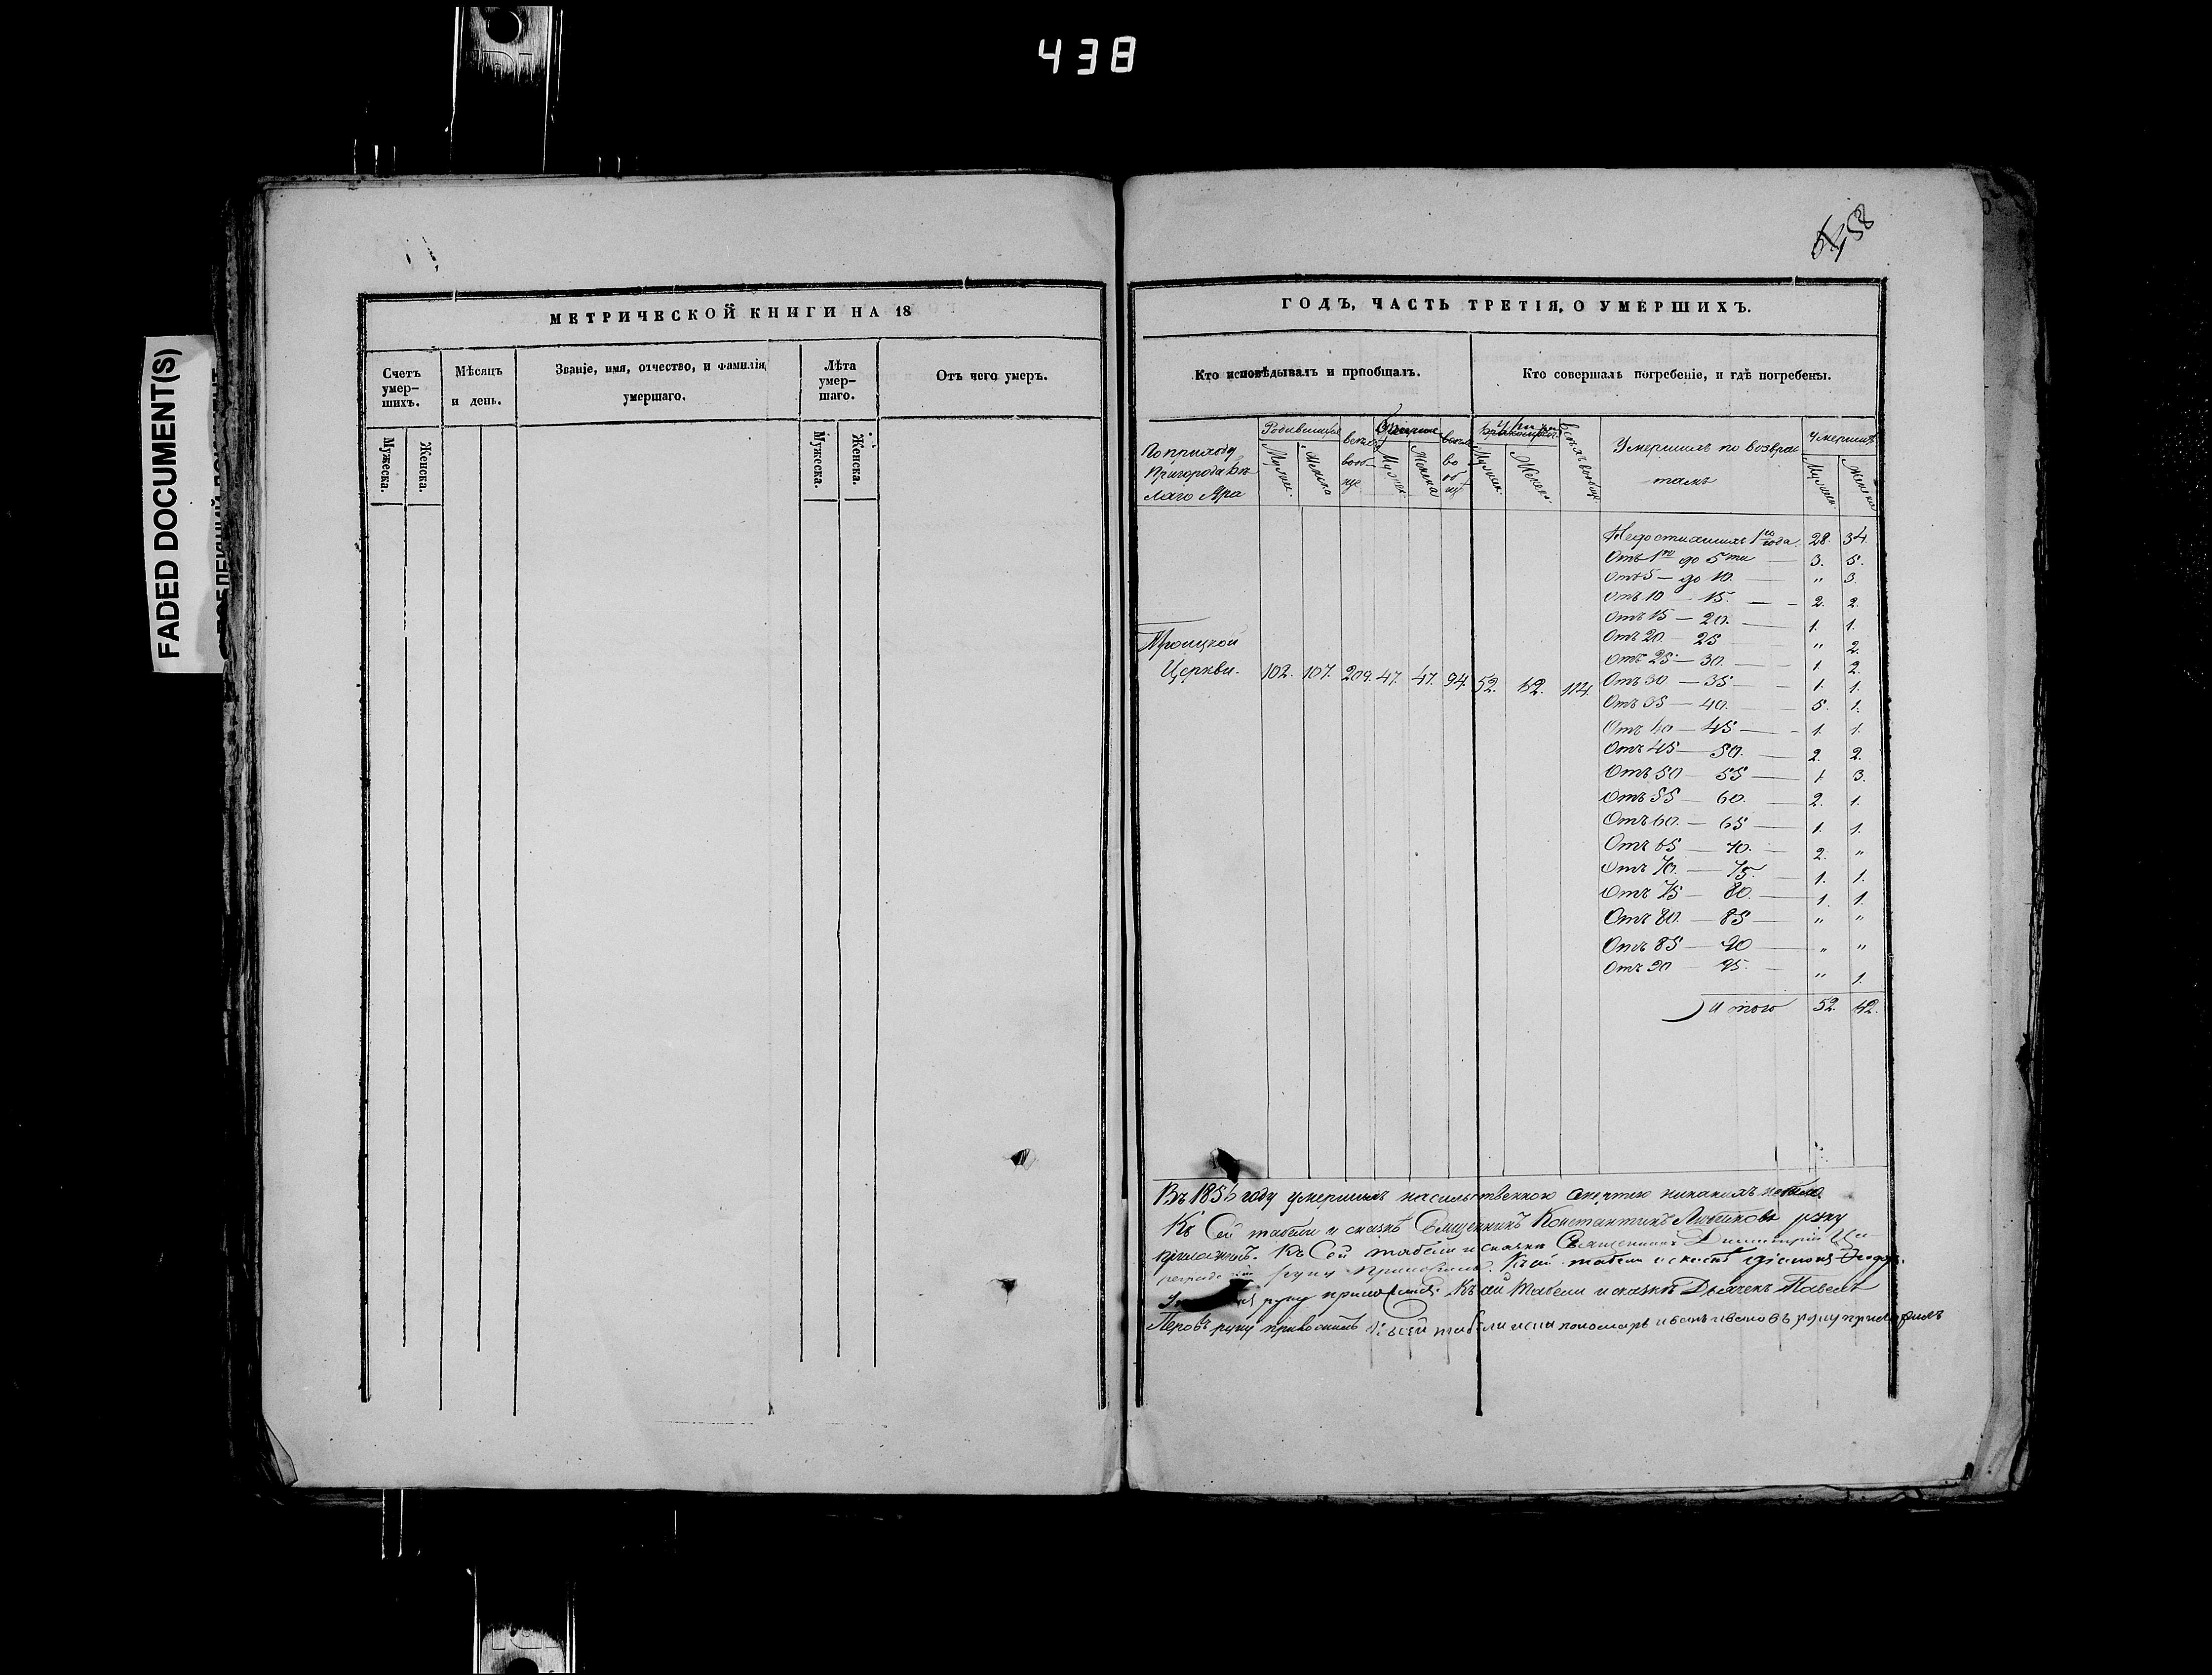 438
58
FADED DOCUMENT(S)
МЕТРИЧЕСКОЙ КНИГИ НА 18
Счетъ умер-
шихъ.
Мѣсяцъ
и день.
Званіе, имя, отчество, и фамилія
умершаго.
Лѣта
умер-
шаго.
Отъ чего умеръ.
Мужеска.
Женска.
Мужеска.
Женска.
ГОДЪ, ЧАСТЬ ТРЕТІЯ, О УМЕРШИХЪ.
Кто исповѣдывалъ и пріобщалъ.
Кто совершалъ погребеніе, и гдѣ погребены.
По приходу
Пригорода Бѣ-
лаго Яра
Родившихся
Мужес.
Женска
всего
вооб-
ще
Мужес.
Женска
всего
во
об
ще
Мужеск.
Женск.
всѣхъ вообще
Умершихъ по возрас
тамъ
Умершихъ
Мужеск.
Женска
Троицкой
Церкви. 102. 107. 209. 47. 47. 94. 52. 62. 114.
Недостигшихъ 1го года. 28. 34.
Отъ 1го до 5ти — 3. 5.
Отъ 5 — до 10. — " 3.
Отъ 10 — 15. — 2. 2.
Отъ 15 — 20. — 1. 1.
Отъ 20 — 25 " 2.
Отъ 25 — 30. — 1. 2.
Отъ 30 — 35 — 1. 1.
Отъ 35 — 40. — 5. 1.
Отъ 40 — 45 — 1. 1.
Отъ 45 — 50. — 2. 2.
Отъ 50 — 55 — 1. 3.
Отъ 55 — 60. — 2. 1.
Отъ 60. — 65 — 1. 1.
Отъ 65 — 70. — 2. "
Отъ 70. — 75. — 1. 1.
Отъ 75 — 80. — 1. 1.
Отъ 80. — 85 — " "
Отъ 85 — 90 — " "
Отъ 90 — 95. — " 1.
Итого 52. 62.
Въ 1856 году умершихъ насильственною смертію никакихъ небыло.
Къ сей табели и сказкѣ Священникъ Константинъ Любимовъ руку
приложилъ. Къ Сей табели и сказкѣ Священникъ Димитрій
руку приложилъ. Къ сей табели и сказкѣ діаконъ Ѳеодоръ
руку приложилъ. Къ сей табели и сказкѣ Дьячекъ Павелъ
Перовъ руку приложилъ Къ сей табели пономарь иванъ ивановъ руку приложилъ